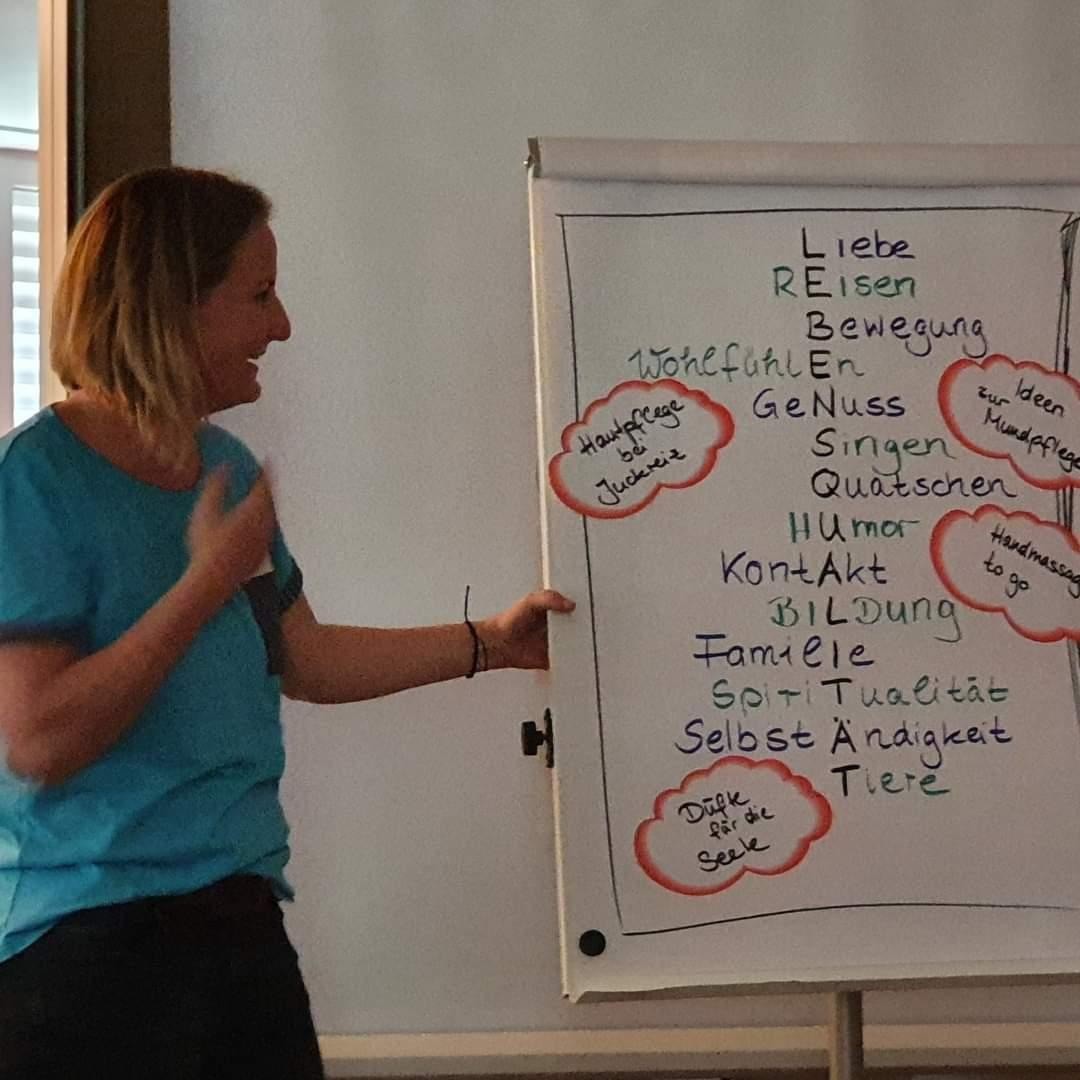 Liebe
REisen
Bewegung
WohlfühlEn
GeNuss
Singen
QuAtschen
HUmor
KontAkt
BILDung
FamilIe
SpiriTualität
SelbstÄndigkeit
Tiere
Hautpflege
bei
Juckreiz
Ideen
zur
Mundpflege
Handmassag
to go
Düfte
für die
Seele